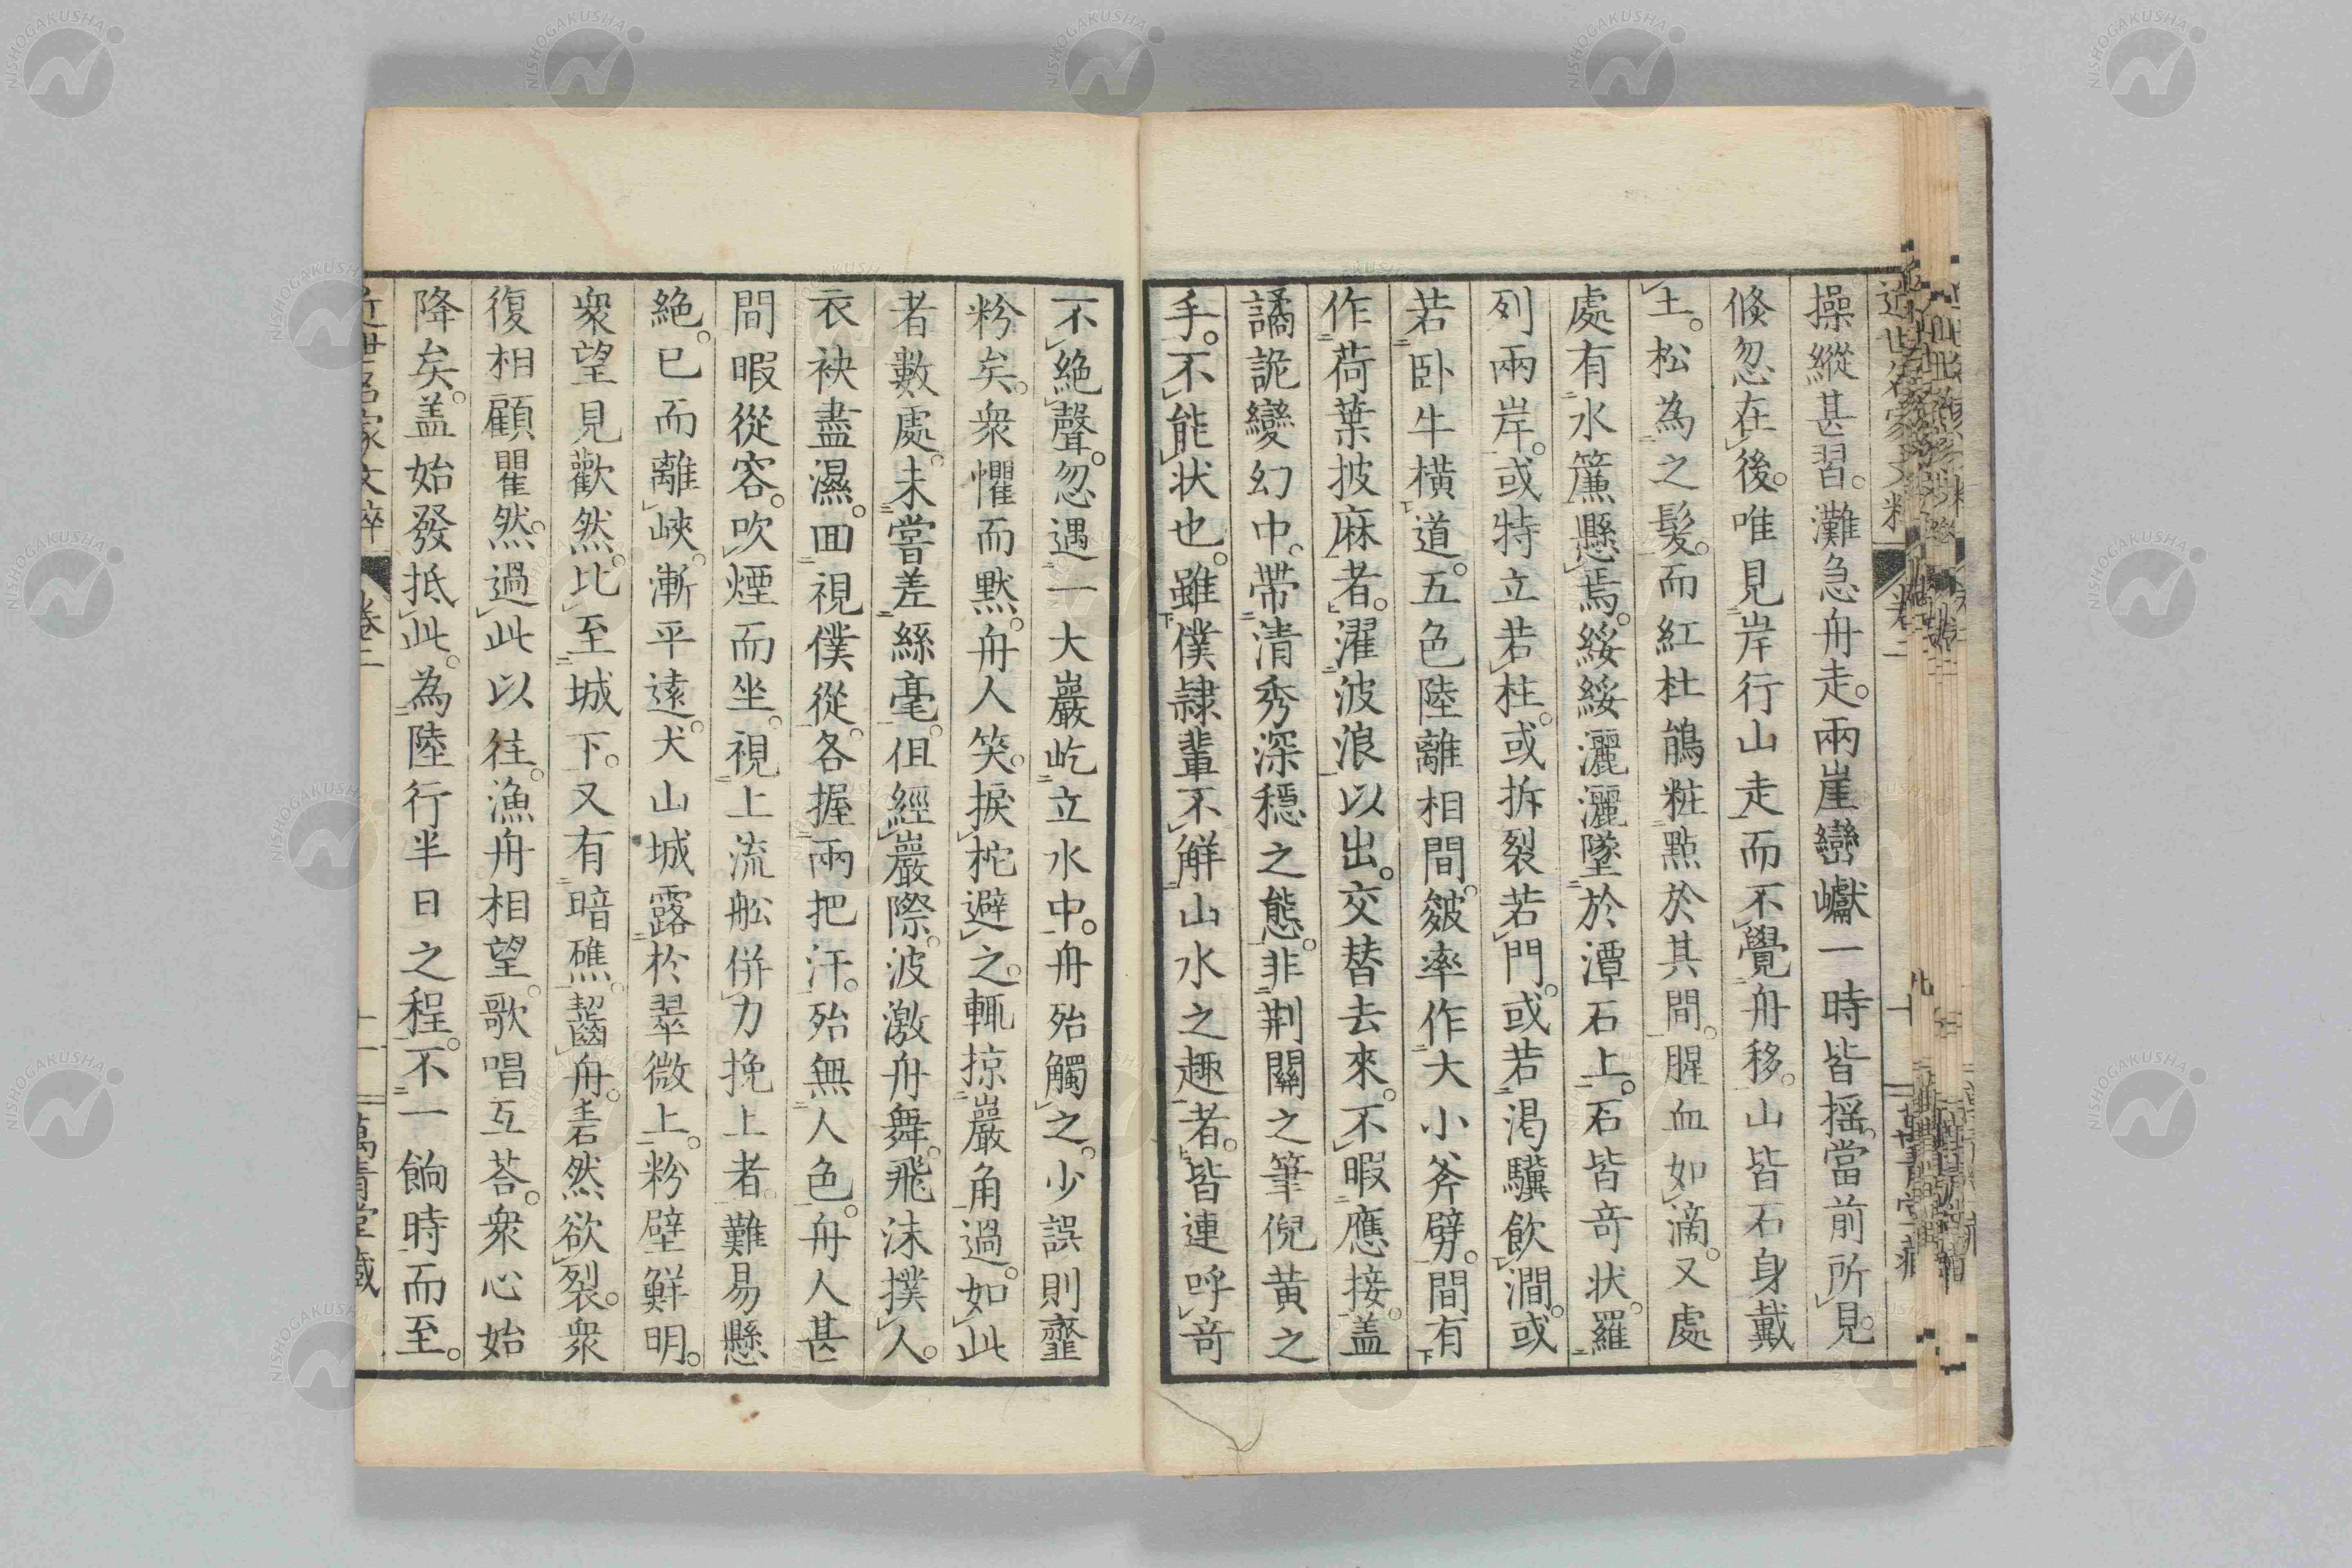 操縱甚習。灘急舟走。兩崖巒巘一時皆搖。當前所見。
倏忽在後。唯見岸行山走而不覺舟移。山皆石身戴
土。松為之髮。而紅杜鵑粧點於其間。腥血如滴。又處
處有水簾懸焉。綏綏灑灑墜於潭石上。石皆奇状。羅
列兩岸。或特立若柱。或拆裂若門。或若渇驥飲澗。或
若卧牛橫道。五色陸離相間。皴率作大小斧劈。間有
作荷葉披麻者。濯波浪以出。交替去來。不暇應接。盖
譎詭變幻中。帶清秀深穩之態。非荆關之筆倪黄之
手。不能状也。雖僕隷輩不解山水之趣者。皆連呼奇
不絶聲。忽遇一大巖屹立水中。舟殆觸之。少誤則虀
粉矣。衆懼而默。舟人笑。捩柁避之。輒掠巖角過。如此
者數處。未嘗差絲毫。但經巖際。波激舟舞。飛沫撲人。
衣袂盡濕。回視僕從。各握兩把汗。殆無人色。舟人甚
間暇從容。吹煙而坐。視上流舩併力挽上者。難易懸
絶。已而離峽。漸平遠。犬山城露於翠微上。粉壁鮮明。
衆望見歡然。比至城下。又有暗礁。齧舟。砉然欲裂。衆
復相顧瞿然。過此以往。漁舟相望。歌唱互荅。衆心始
降矣。盖始發抵此。為陸行半日之程。不一餉時而至。
近世名家文粹
卷二
十一
萬青堂藏